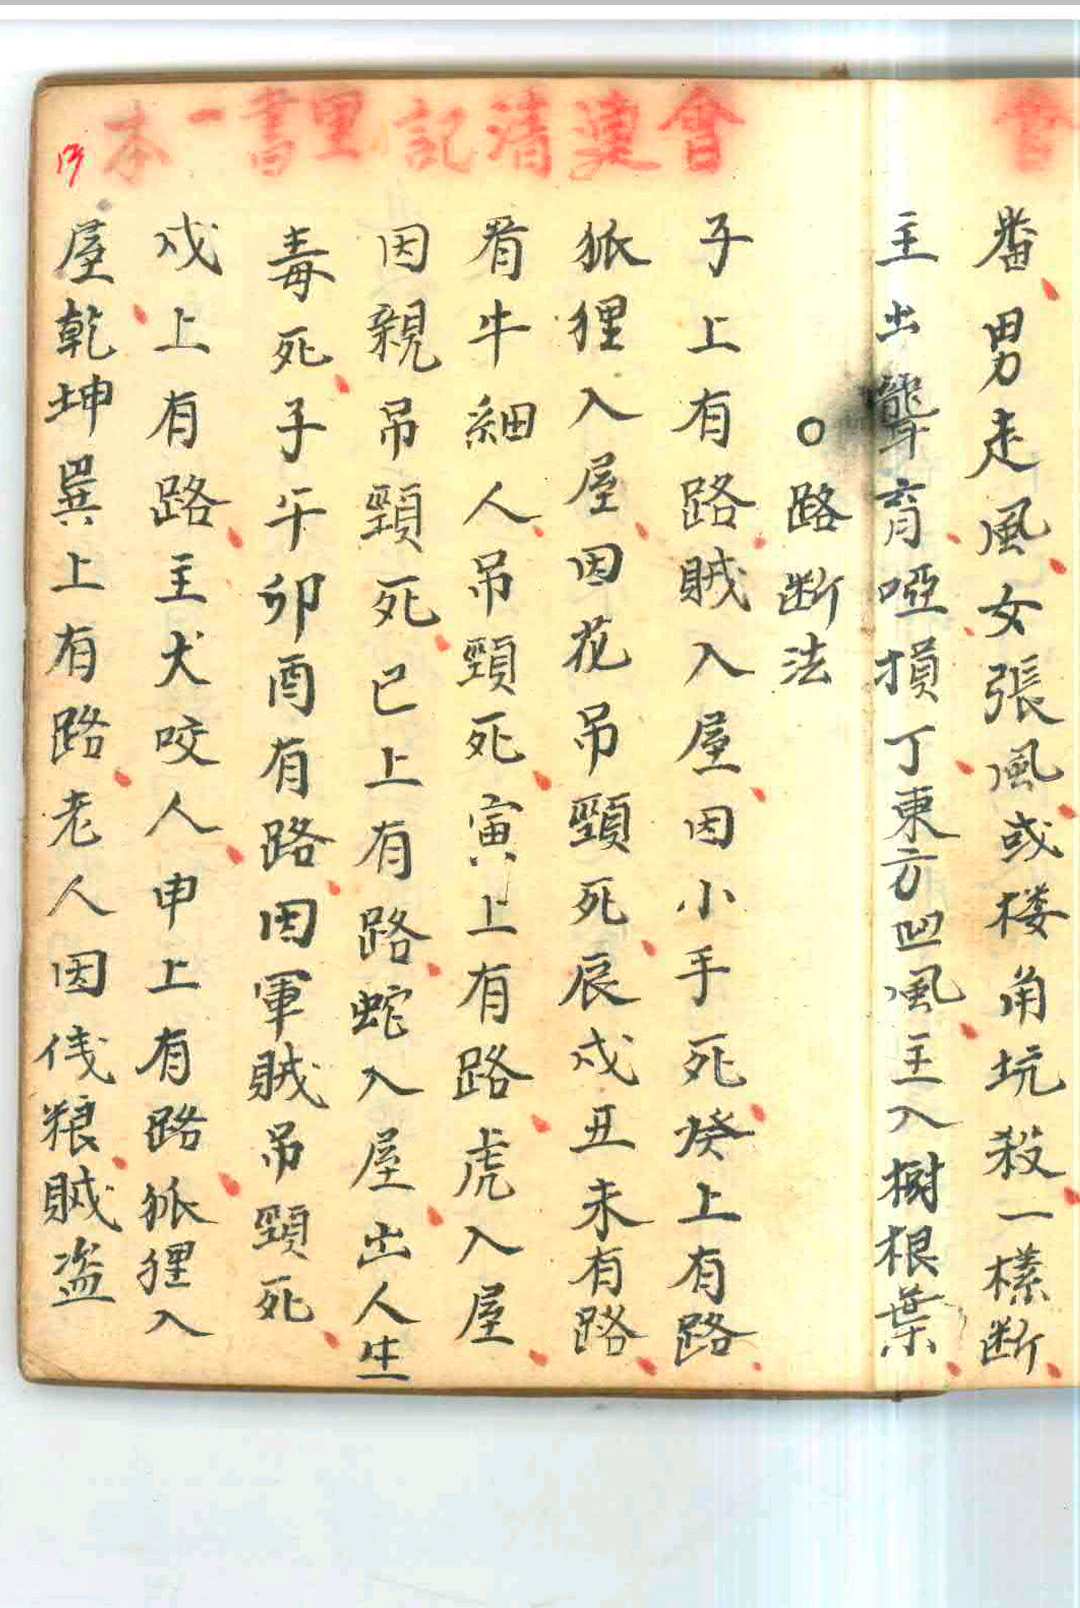 會連清記里書一本
13
番男走風女張風或楼角坑殺一樣断
主出聾盲啞損丁東方凹風主入樹根葉
○路断法
子上有路賊入屋因小手死癸上有路
狐狸入屋因花吊頸死辰戌丑未有路
看牛細人吊頸死寅上有路虎入屋
因親吊頸死巳上有路蛇入屋出人生
毒死子午卯酉有路因軍賊吊頸死
戌上有路主犬咬人申上有路狐狸入
屋乾坤巽上有路老人因伐粮賊盗